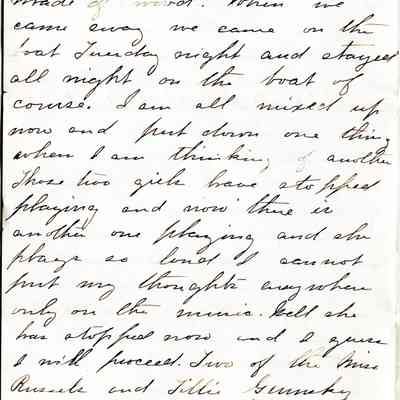 made of wood. When we
came away we came on the
boat Tuesday night and stayed
all night on the boat of
course. I am all mixed up
now and put down one thing
when I am thinking of another
Those two girls have stopped
playing and now there is
another one playing and she
plays so loud I cannot
put my thoughts anywhere
only on the music. Well she
has stopped now and I guess
I will proceed. Two of the Miss
Russels and Tillie